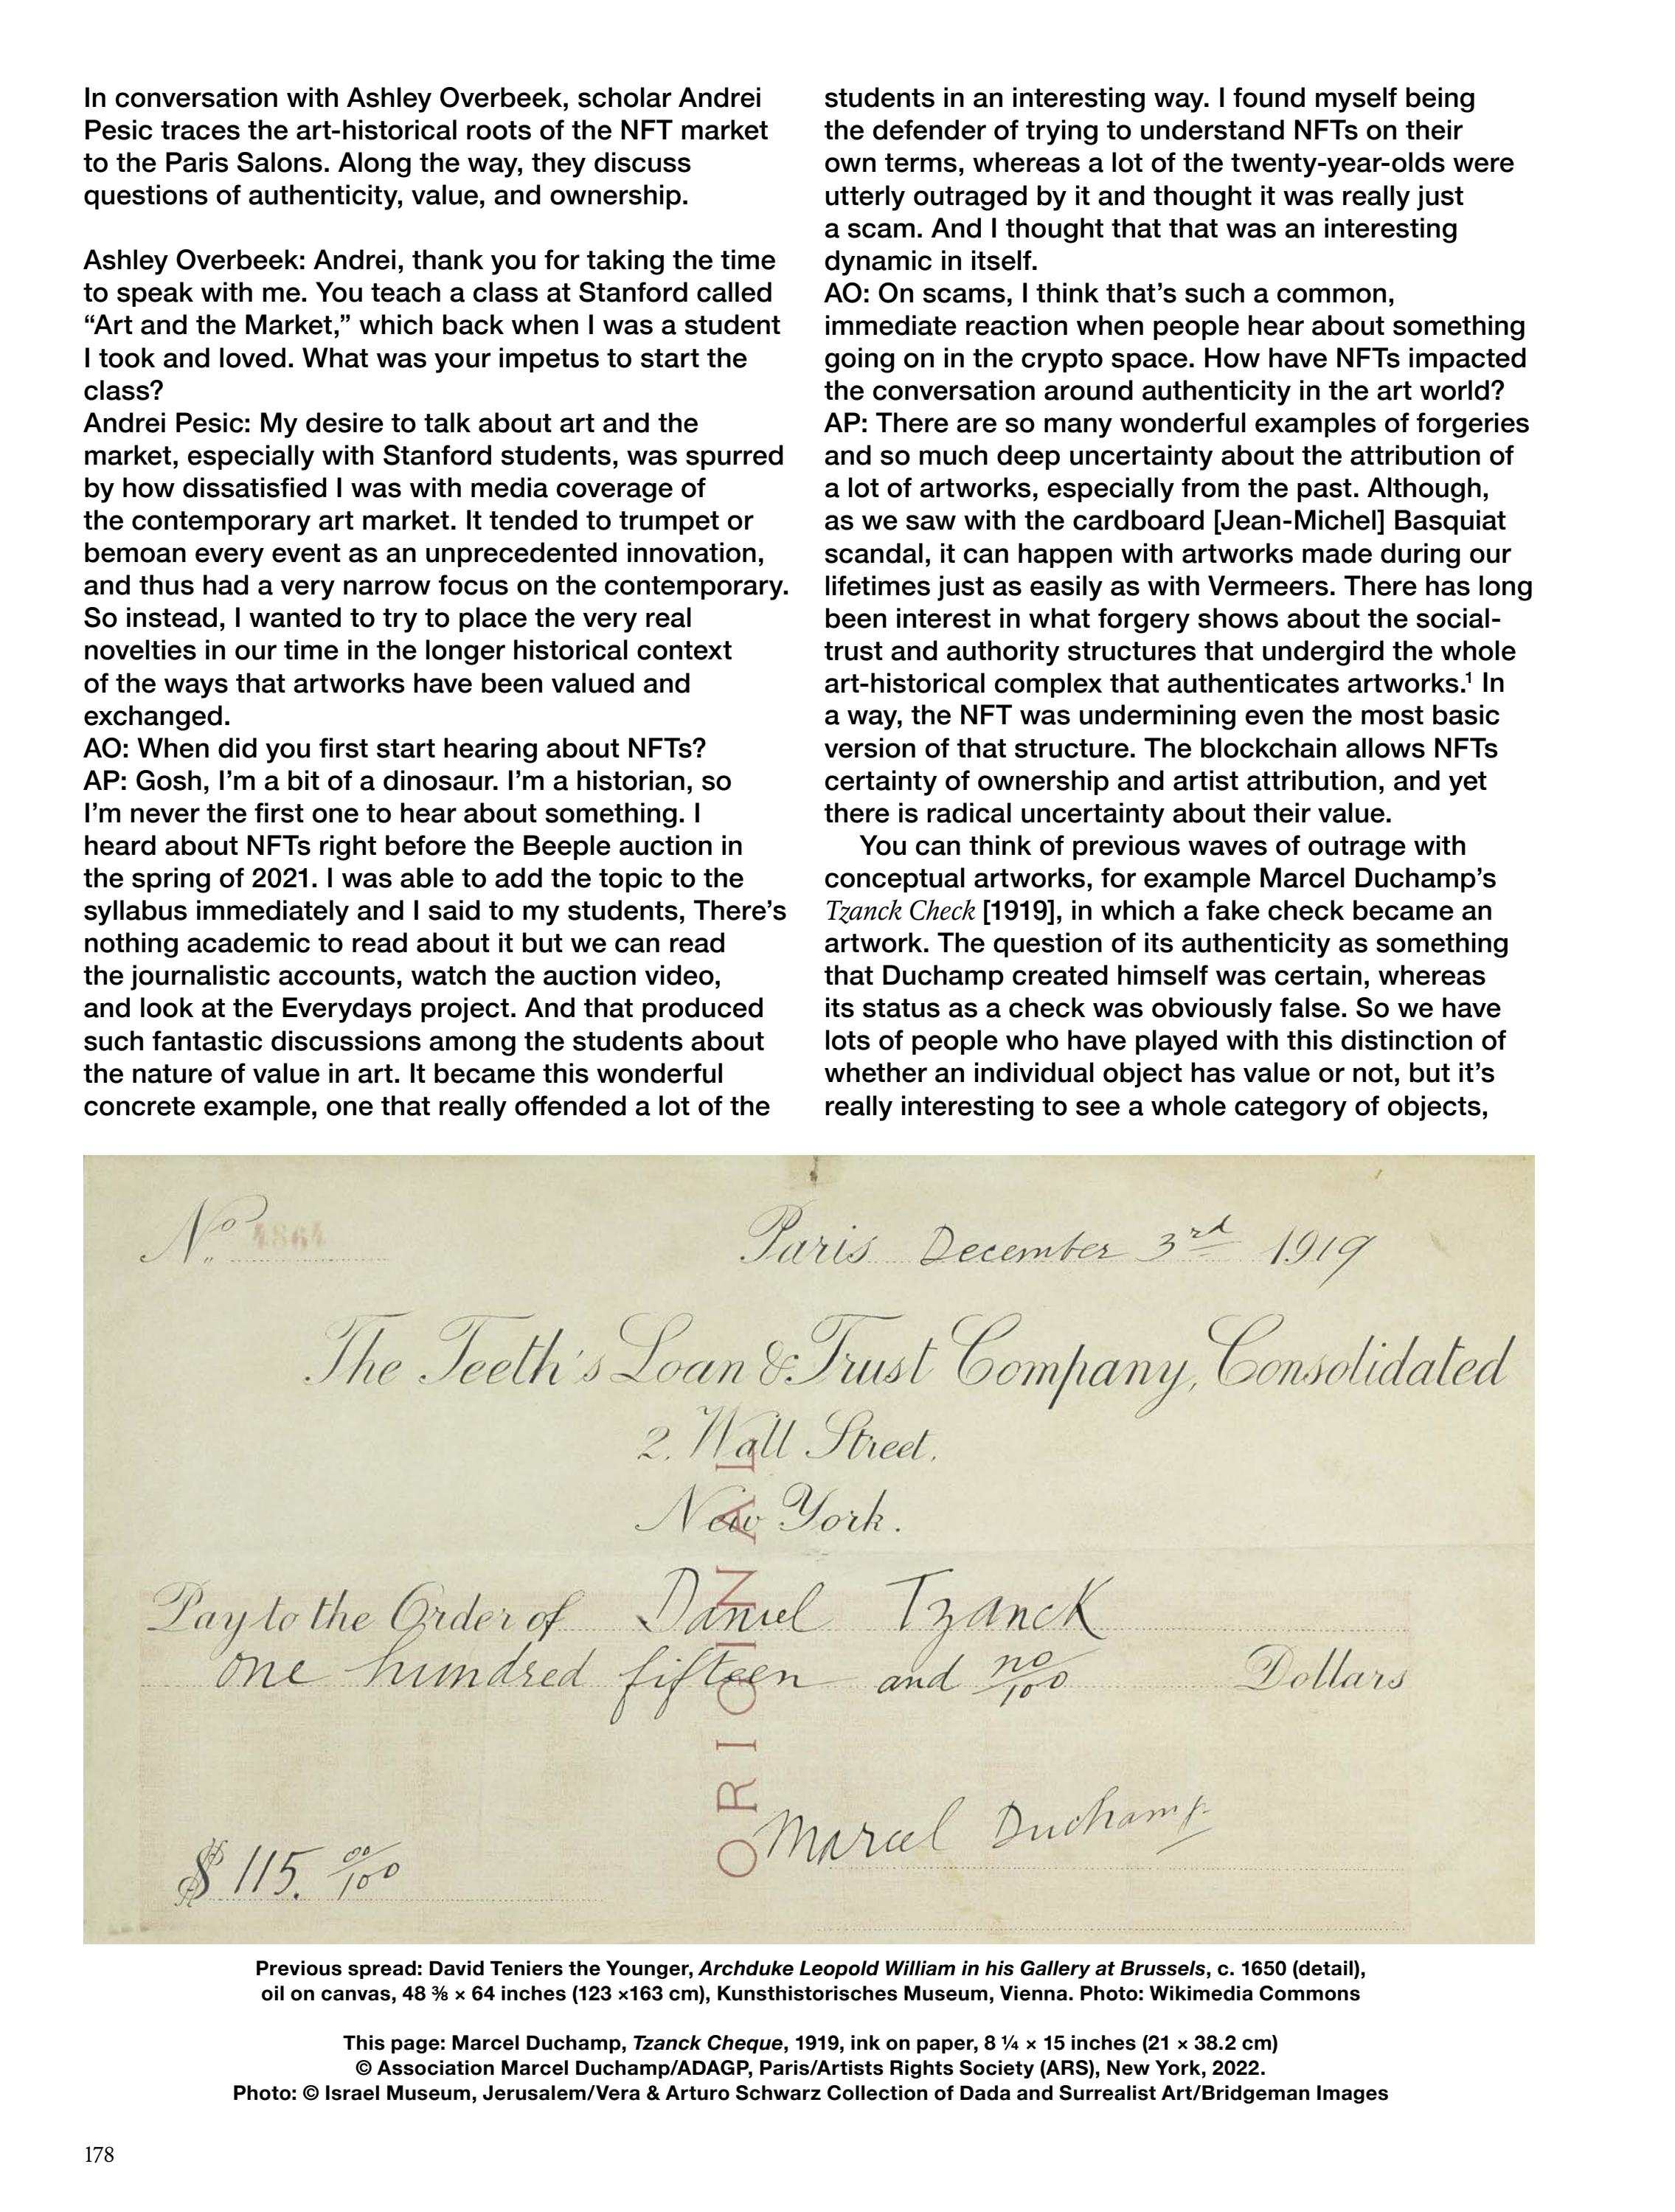 In conversation with Ashley Overbeek, scholar Andrei
Pesic traces the art-historical roots of the NFT market
to the Paris Salons. Along the way, they discuss
questions of authenticity, value, and ownership.
Ashley Overbeek: Andrei, thank you for taking the time
to speak with me. You teach a class at Stanford called
“Art and the Market,” which back when I was a student
I took and loved. What was your impetus to start the
class?
Andrei Pesic: My desire to talk about art and the
market, especially with Stanford students, was spurred
by how dissatisfied I was with media coverage of
the contemporary art market. It tended to trumpet or
bemoan every event as an unprecedented innovation,
and thus had a very narrow focus on the contemporary.
So instead, I wanted to try to place the very real
novelties in our time in the longer historical context
of the ways that artworks have been valued and
exchanged.
AO: When did you first start hearing about NFTs?
AP: Gosh, I’m a bit of a dinosaur. I’m a historian, so
I’m never the first one to hear about something. I
heard about NFTs right before the Beeple auction in
the spring of 2021. I was able to add the topic to the
syllabus immediately and I said to my students, There’s
nothing academic to read about it but we can read
the journalistic accounts, watch the auction video,
and look at the Everydays project. And that produced
such fantastic discussions among the students about
the nature of value in art. It became this wonderful
concrete example, one that really offended a lot of the
students in an interesting way. I found myself being
the defender of trying to understand NFTs on their
own terms, whereas a lot of the twenty-year-olds were
utterly outraged by it and thought it was really just
a scam. And I thought that that was an interesting
dynamic in itself.
AO: On scams, I think that’s such a common,
immediate reaction when people hear about something
going on in the crypto space. How have NFTs impacted
the conversation around authenticity in the art world?
AP: There are so many wonderful examples of forgeries
and so much deep uncertainty about the attribution of
a lot of artworks, especially from the past. Although,
as we saw with the cardboard [Jean-Michel] Basquiat
scandal, it can happen with artworks made during our
lifetimes just as easily as with Vermeers. There has long
been interest in what forgery shows about the social-
trust and authority structures that undergird the whole
art-historical complex that authenticates artworks.¹ In
a way, the NFT was undermining even the most basic
version of that structure. The blockchain allows NFTs
certainty of ownership and artist attribution, and yet
there is radical uncertainty about their value.
You can think of previous waves of outrage with
conceptual artworks, for example Marcel Duchamp’s
Tzanck Check [1919], in which a fake check became an
artwork. The question of its authenticity as something
that Duchamp created himself was certain, whereas
its status as a check was obviously false. So we have
lots of people who have played with this distinction of
whether an individual object has value or not, but it’s
really interesting to see a whole category of objects,
No. 4864
Paris December 3rd 1919
The Teeth's Loan & Trust Company, Consolidated
2, Wall Street,
New York.
ORIGINAL
Pay to the Order of Daniel Tzanck
one hundred fifteen and no/100 Dollars
Marcel Duchamp
$ 115. 00/100
Previous spread: David Teniers the Younger, Archduke Leopold William in his Gallery at Brussels, c. 1650 (detail),
oil on canvas, 48 ⅜ × 64 inches (123 ×163 cm), Kunsthistorisches Museum, Vienna. Photo: Wikimedia Commons
This page: Marcel Duchamp, Tzanck Cheque, 1919, ink on paper, 8 ¼ × 15 inches (21 × 38.2 cm)
© Association Marcel Duchamp/ADAGP, Paris/Artists Rights Society (ARS), New York, 2022.
Photo: © Israel Museum, Jerusalem/Vera & Arturo Schwarz Collection of Dada and Surrealist Art/Bridgeman Images
178